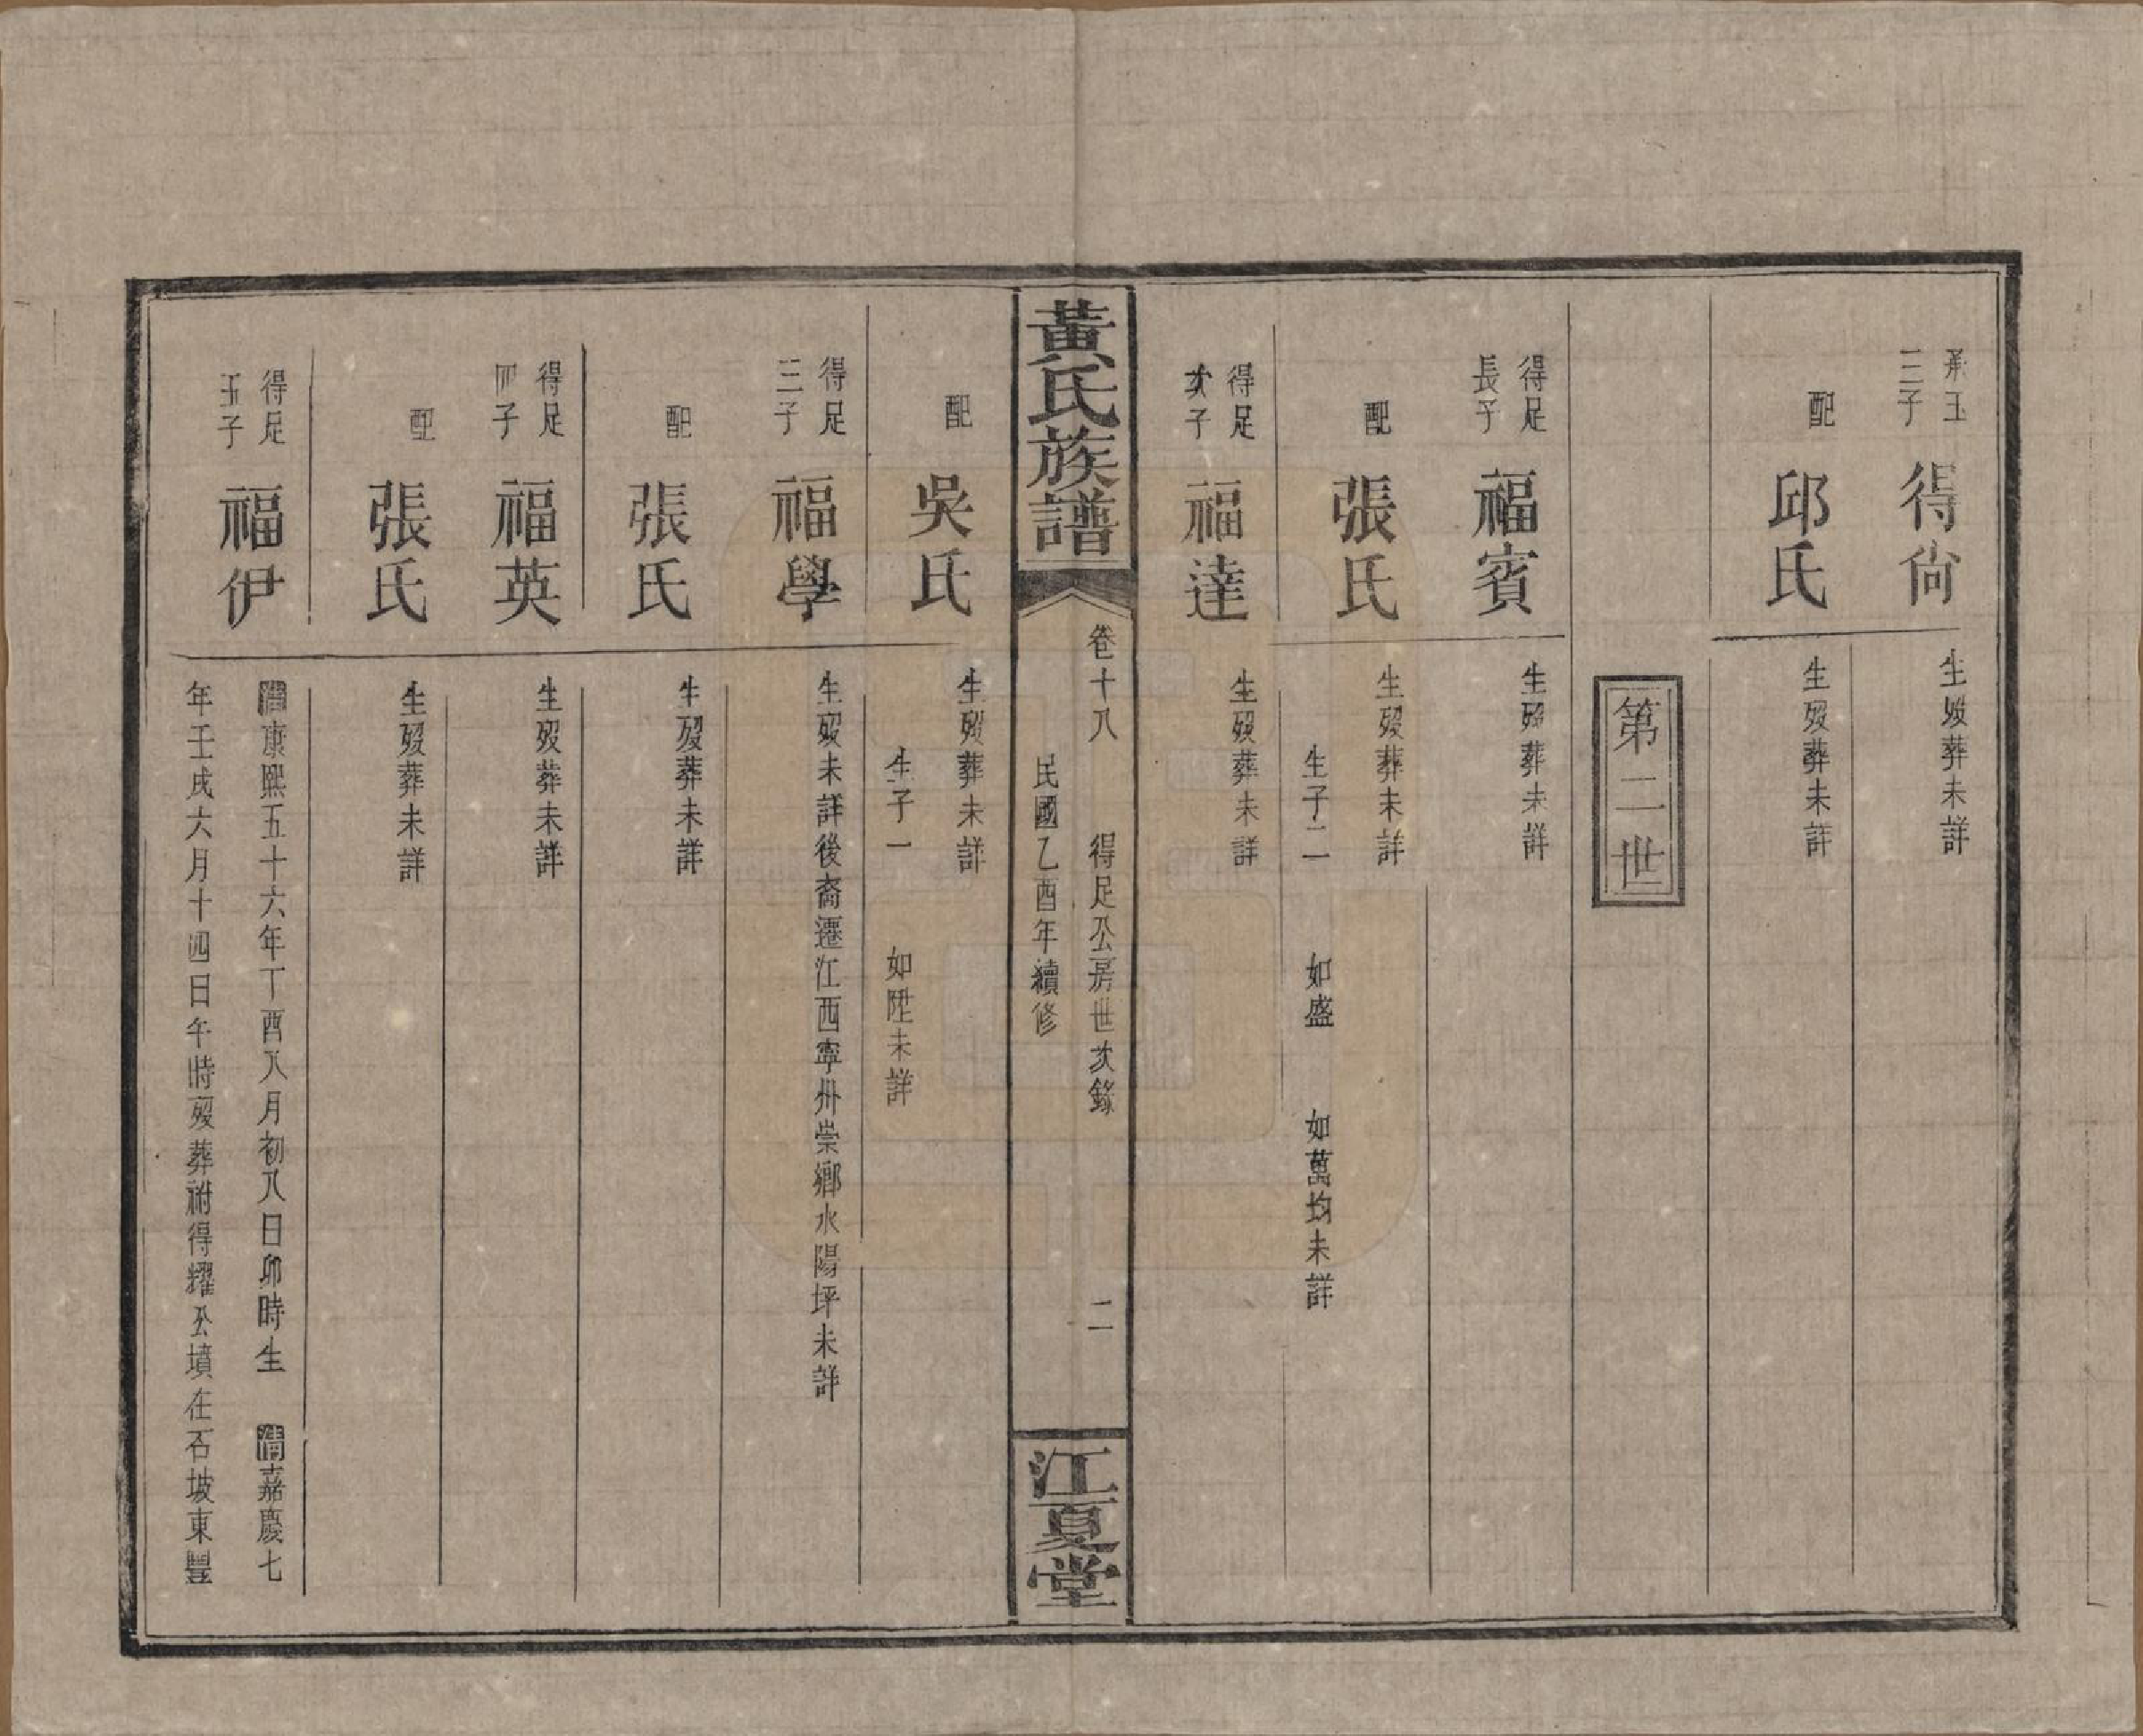 承玉
三子
得尙
生歿葬未詳
配
邱氏
生歿葬未詳
第二世
得足
長子
福賓
生歿葬未詳
配
張氏
生歿葬未詳
生子二 如盛 如萬均未詳
得足
次子
福達
生歿葬未詳
黃氏族譜
卷十八 得足公房世次錄 二
民國乙酉年續修
江夏堂
配
吳氏
生歿葬未詳
生子一 如陞未詳
得足
三子
福學
生歿未詳後裔遷江西寧州崇鄉水陽坪未詳
配
張氏
生歿葬未詳
得足
四子
福英
生歿葬未詳
配
張氏
生歿葬未詳
得足
五子
福伊
清康熙五十六年丁酉八月初八日卯時生 清嘉慶七
年壬戌六月十四日午時歿葬祔得耀公墳在石坡東豐